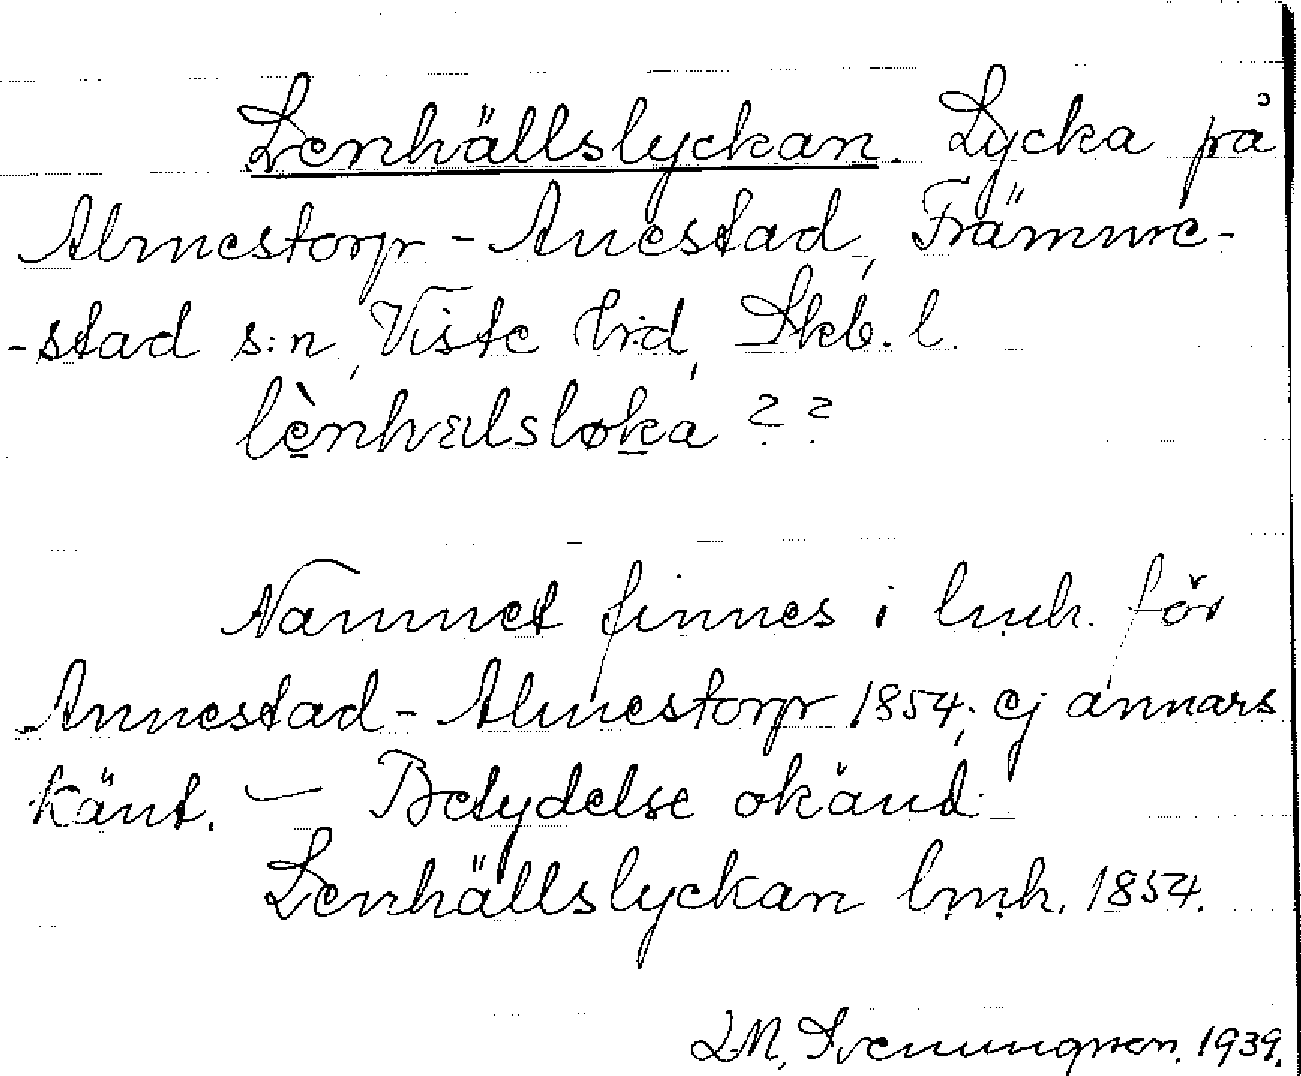 Lenhällslyckan. Lycka på
Almestorp - Anestad, Främme-
-stad s:n, Viste hrd, Skb. l.
lènhælsløka ??
Namnet finnes i lmh. för
Annestad - Almestorp 1854; ej annars
känt. — Betydelse okänd.
Lenhällslyckan lmh. 1854.
LM, Svenungsson. 1939.